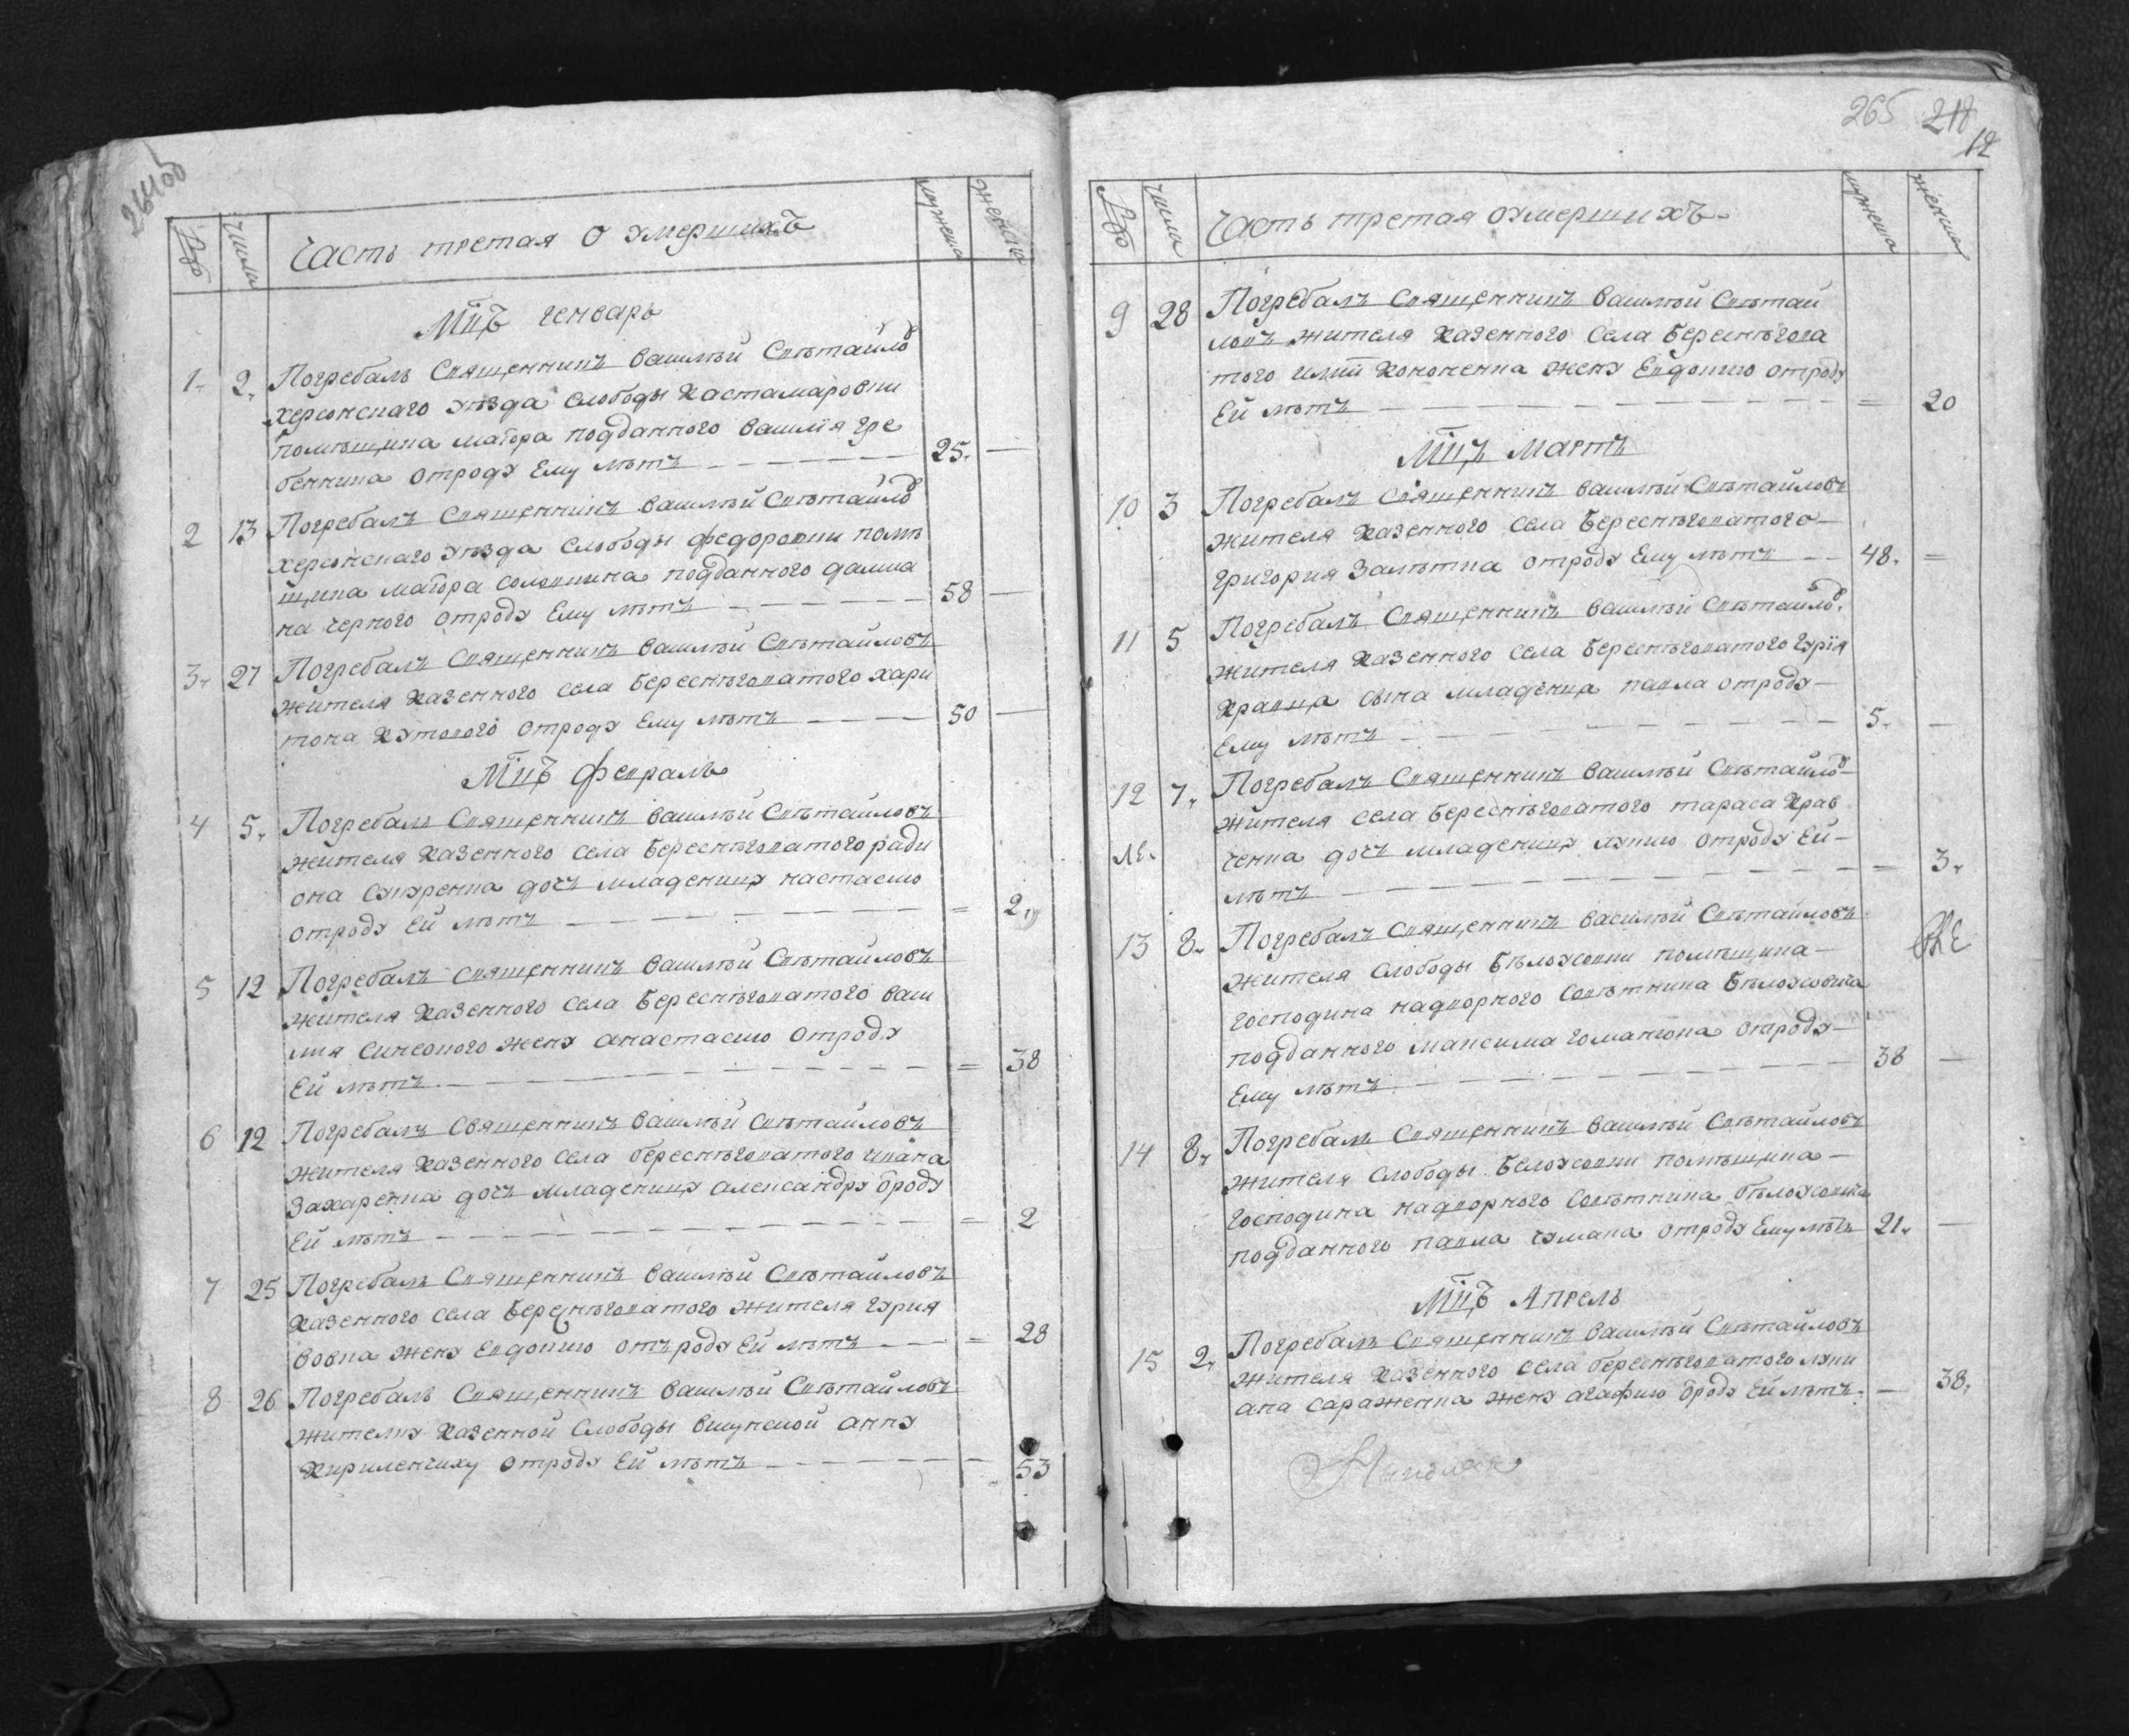 264об
Числа
Часть третая о умершихъ
мужеска
женска
Мцъ генварь
1. 2. Погребалъ Священникъ Василїй Свѣтайло
херсонскаго уѣзда слободы Кастамаровки
помѣщика маїора подданного Василїя Гре
бенника отроду Ему лѣтъ — 25. —
2 13 Погребалъ Священникъ Василїй Свѣтайло
херсонского уѣзда Слободы федоровки помѣ
щика маїора соловкина подданного дамиа
на черного отроду Ему лѣтъ — 58 —
3. 27 Погребалъ Священникъ Василїй Свѣтайловъ
жителя Казенного села Береснѣговатого хари
тона Кутового отроду Ему лѣтъ — 50 —
Мцъ февраль
4 5. Погребалъ Священникъ Василїй Свѣтайловъ
жителя Казенного села Береснѣговатого ради
она дочъ младеницу настасию
отроду Ей лѣтъ — = 2.
5 12 Погребалъ священникъ Василїй Свѣтайловъ
жителя Казенного села Береснѣговатого васи
лия синсового жену анастасию отроду
Ей лѣтъ — = 38
6 12 Погребалъ Священникъ Василїй Свѣтайловъ
жителя Казенного села береснѣговатого ивана
Захаренка дочъ младеницу александру ѿроду
Ей лѣтъ — = 2
7 25 Погребалъ Священникъ Василїй Свѣтайловъ
Казенного села Береснѣговатого жителя гурия
вовка жену Евдокию отъ роду Ей лѣтъ — = 28
8 26 Погребалъ Священникъ Василїй Свѣтайловъ
жителку Казенной Слободы висунской анну
Кириленчиху отроду Ей лѣтъ — 53
265 218
12
Числа
Часть третая оумершихъ
мужеска
женска
9 28 Погребалъ Священникъ Василїй Свѣтай
ловъ жителя Казенного села Береснѣгова
того илїи Кононенка жену Евдокию отроду
Ей лѣтъ — = 20
Мцъ Мартъ
10 3 Погребалъ Священникъ Василїй Свѣтайловъ
жителя Казенного села Береснѣговатого
григория Залѣтка отроду Ему лѣтъ — 48. =
11 5 Погребалъ Священникъ Василїй Свѣтайло.
жителя Казенного села Береснѣговатого гурїя
Кравца сына младенца павла отроду
Ему лѣтъ — 5. —
12 7. Погребалъ Священникъ Василїй Свѣтайло
жителя села Береснѣговатого тараса Крав
ченка дочъ младеницу лукию отроду Ей
лѣтъ — 3.
13 8. Погребалъ Священникъ Василїй Свѣтайловъ
жителя Слободы Бѣлоусовки помѣщика
господина надворного Совѣтника Бѣлоусовича
подданного максима гоманюка отроду
Ему лѣтъ — 38 —
14 8. Погребалъ Священникъ Василїй Свѣтайловъ
жителя Слободы Белоусовки помѣщика
господина надворного Совѣтника бѣлоусовича
подданного павла чумака отроду Ему лѣтъ 21. —
Мцъ Апрель
15 2. Погребалъ Священникъ Василїй Свѣтайловъ
жителя Казенного села береснѣговатого луки
ана сараженка жену агафию ѿроду Ей лѣтъ. — 38.